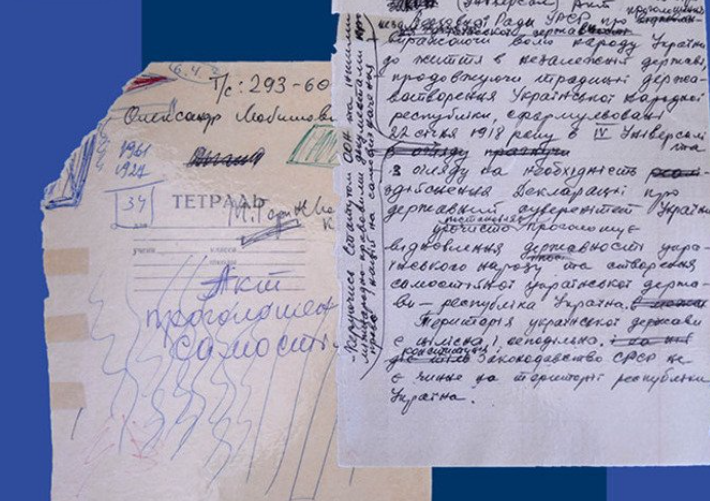 6.4.
Т/с: 293-60
Олександр
1961
1927
34
ТЕТРАДЬ
для
учени
класса
школы
Акт
проголошен
самості
Керуючись Статутом ООН та іншими
міжнародно-правовими документами про
право націй на самовизначення
(Універсал) Акт проголошення
Верховної Ради УРСР про
виражаючи волю народу України
до життя в незалежній державі,
продовжуючи традиції держа-
вотворення Української Народної
республіки, сформульовані
22 січня 1918 року в IV Універсалі
в огляду практики та
з огляду на необхідність
здійснення Декларації про
державний суверенітет України
урочисто проголошує
відновлення державності укра-
їнського народу та створення
самостійної української держа-
ви – республіка Україна.
Територія української держави
є цілісна і неподільна.
конституція
Законодавство СРСР не
є чинне на території республіки
Україна.